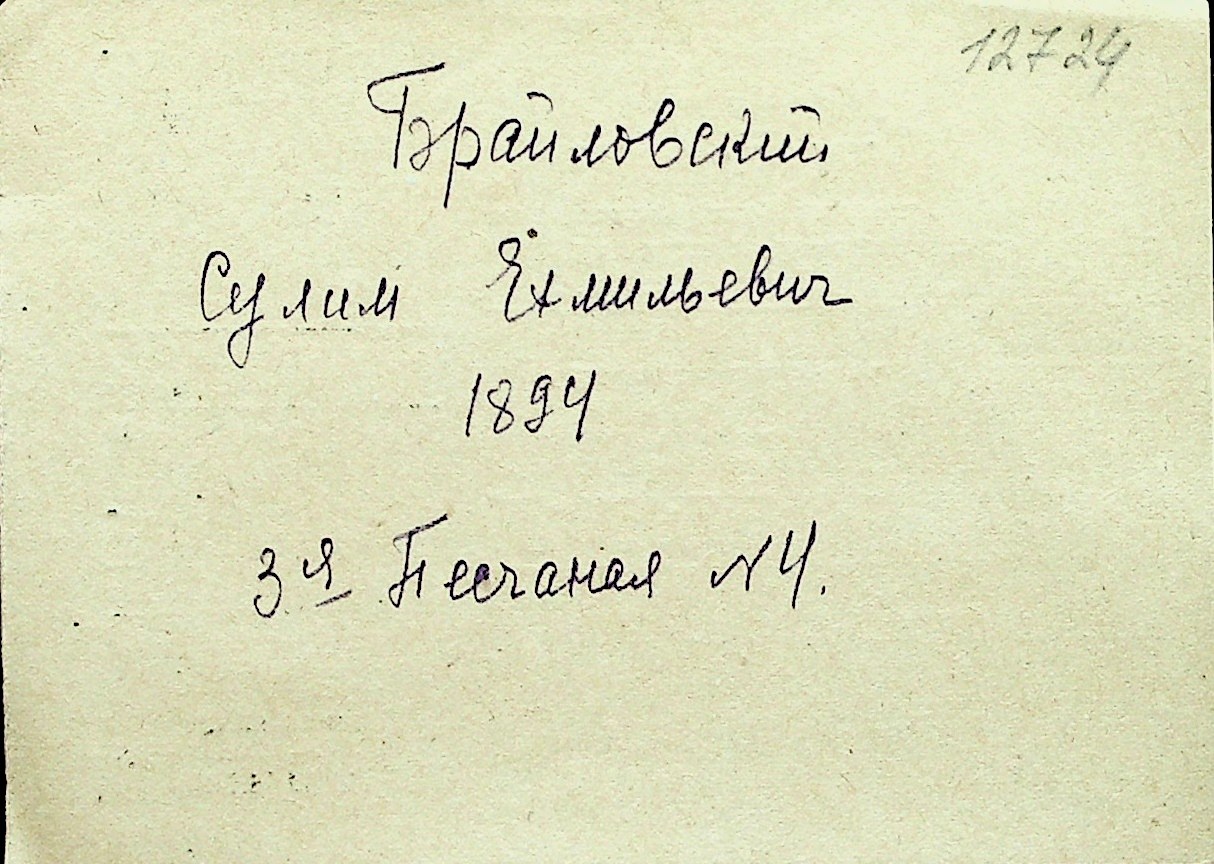 12724
Брайловский
Сулим Ехмильевич
1894
3я Песчаная N4.